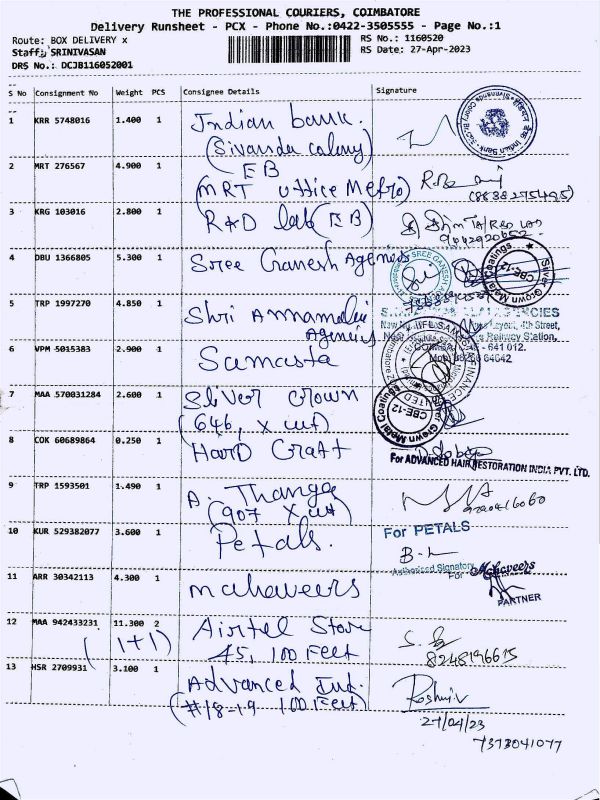 THE PROFESSIONAL COURIERS, COIMBATORE
Delivery Runsheet - PCX - Phone No.:0422-3505555 - Page No.:1
Route: BOX DELIVERY x
RS No.: 1160520
Staff: SRINIVASAN
RS Date: 27-Apr-2023
DRS No.: DCJB116052001
S No Consignment No Weight PCS Consignee Details Signature
1 KRR 5748016 1.400 1 Indian bank.
(Sivanda colony)
2 MRT 276567 4.900 1 EB
(MRT office Metro)
3 KRG 103016 2.800 1 R&D lab (EB)
4 DBU 1366805 5.300 1 Sree Ganesh Agencies
5 TRP 1997270 4.850 1 Shri Annamalai
Agencies
6 VPM 5015383 2.900 1 Samasta
7 MAA 570031284 2.600 1 Sliver Crown
(646, x cut)
8 COK 60689864 0.250 1 Hard Craft
For ADVANCED HAIR RESTORATION INDIA PVT. LTD.
9 TRP 1593501 1.490 1 A. Thanga
(907 x cut)
10 KUR 529382077 3.600 1 Petals.
For PETALS
Authorised Signatory
11 ARR 30342113 4.300 1 mahaveers
For Mahaveers
PARTNER
12 MAA 942433231 11.300 2 Airtel Store
(1+1) 45, 100 Feet
8248196615
13 HSR 2709931 3.100 1 Advanced Ind.
(#18-19 100 Feet)
27/04/23
7373041077